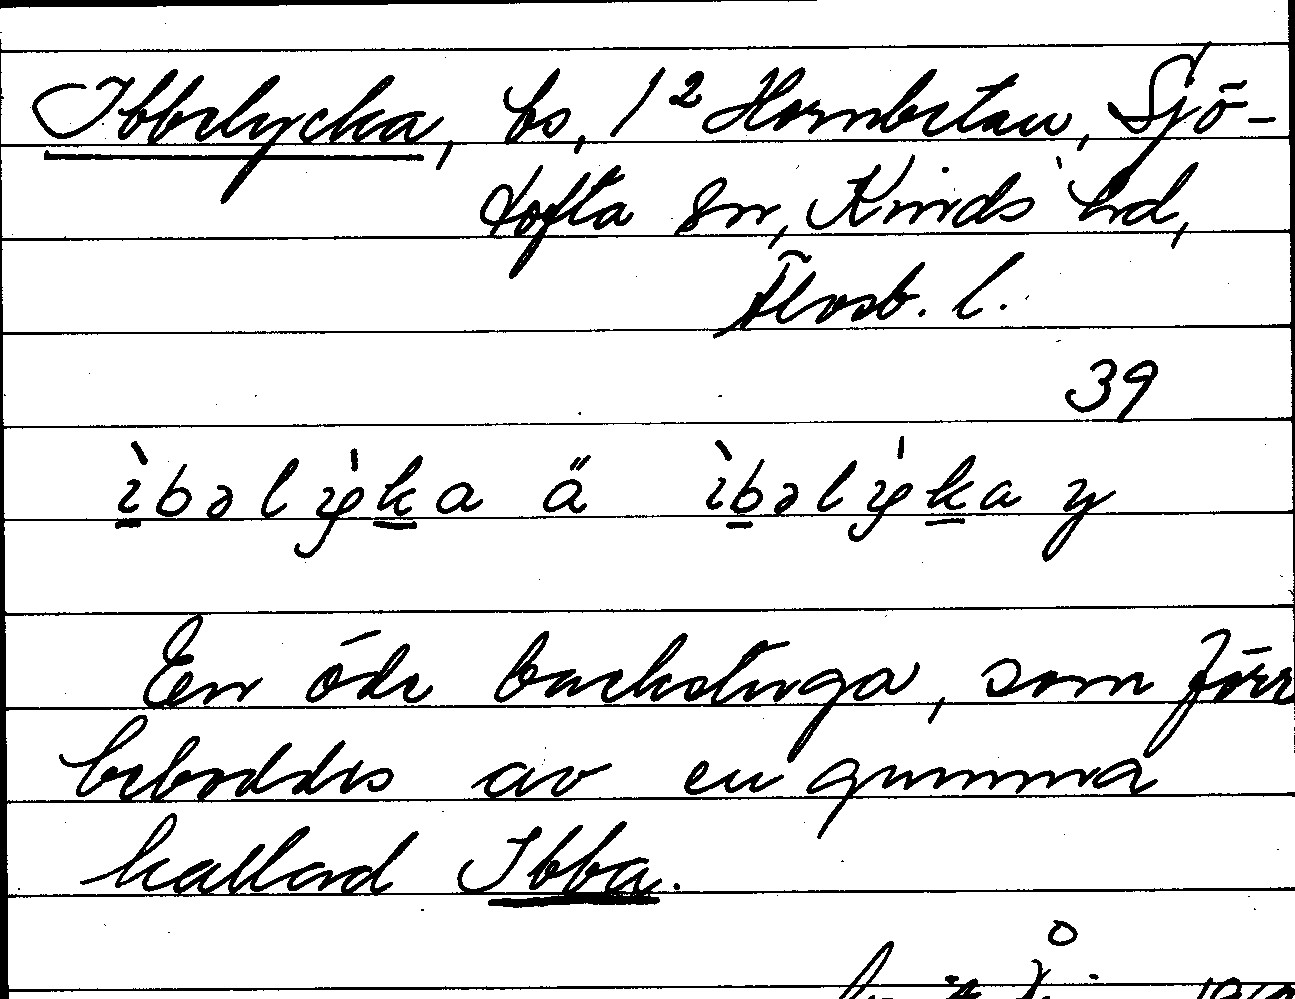 Ibbelycka, bs, 1² Hornbetan, Sjö-
tofta sn, Kinds hd,
Älvsb. l.
39
ìbəlỳka ä ìbəlỳka y
En öde backstuga, som förr
beboddes av en gumma
kallad Ibba.